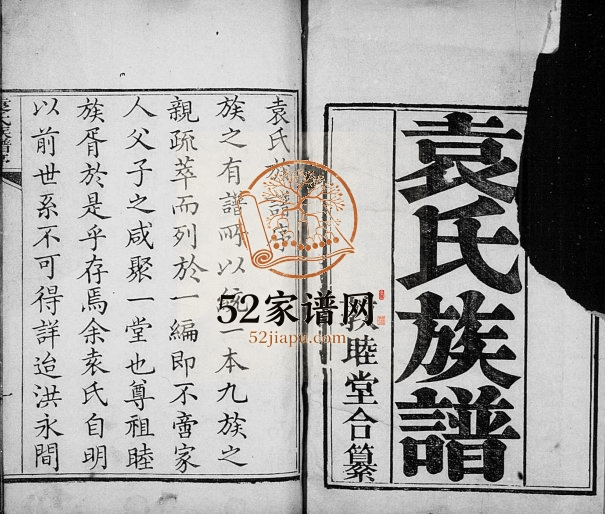 袁氏族譜
敦睦堂合纂
袁氏族譜序
族之有譜所以統一本九族之
親疏萃而列於一編即不啻家
人父子之咸聚一堂也尊祖睦
族胥於是乎存焉余袁氏自明
以前世系不可得詳迨洪永間
袁氏族譜序
一
52家谱网
52jiapu.com